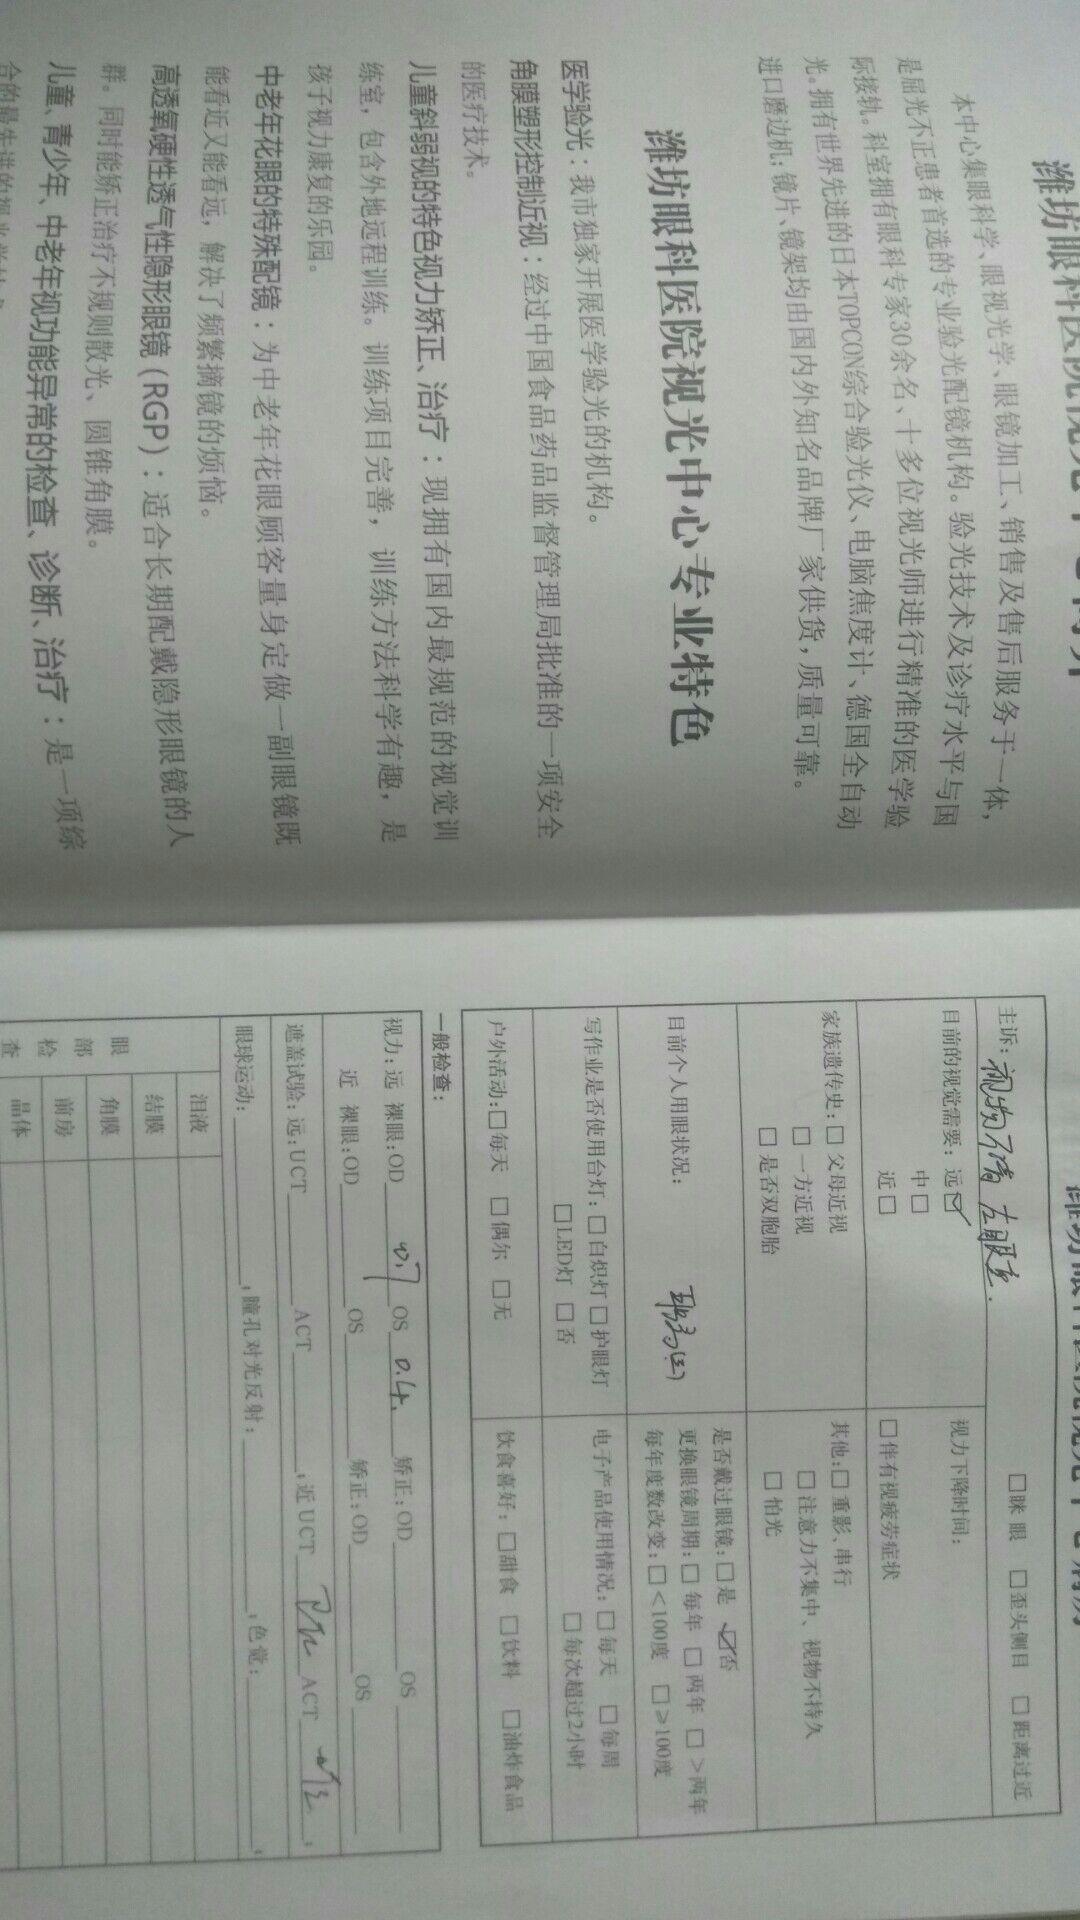 本中心集眼科学、眼视光学、眼镜加工、销售及售后服务于一体，
是屈光不正患者首选的专业验光配镜机构。验光技术及诊疗水平与国
际接轨。科室拥有眼科专家30余名、十多位视光师进行精准的医学验
光。拥有世界先进的日本TOPCON综合验光仪、电脑焦度计、德国全自动
进口磨边机；镜片、镜架均由国内外知名品牌厂家供货，质量可靠。
潍坊眼科医院视光中心专业特色
医学验光：我市独家开展医学验光的机构。
角膜塑形控制近视：经过中国食品药品监督管理局批准的一项安全
的医疗技术。
儿童斜弱视的特色视力矫正、治疗：现拥有国内最规范的视觉训
练室，包含外地远程训练。训练项目完善，训练方法科学有趣，是
孩子视力康复的乐园。
中老年花眼的特殊配镜：为中老年花眼顾客量身定做一副眼镜既
能看近又能看远，解决了频繁摘镜的烦恼。
高透氧硬性透气性隐形眼镜（RGP）：适合长期配戴隐形眼镜的人
群。同时能矫正治疗不规则散光、圆锥角膜。
儿童、青少年、中老年视功能异常的检查、诊断、治疗：是一项综
主诉：视物不清 左眼重. □眯眼 □歪头侧目 □距离过近
目前的视觉需要：远☑ 视力下降时间：
中□
近□ □伴有视疲劳症状
家族遗传史：□父母近视 其他：□重影、串行
□一方近视 □注意力不集中、视物不持久
□是否双胞胎 □怕光
目前个人用眼状况： 是否戴过眼镜：□是 ☑否
更换眼镜周期：□每年 □两年 □>两年
每年度数改变：□<100度 □≥100度
写作业是否使用台灯：□白炽灯 □护眼灯 电子产品使用情况：□每天 □每周
□LED灯 □否 □每次超过2小时
户外活动：□每天 □偶尔 □无 饮食喜好：□甜食 □饮料 □油炸食品
一般检查：
视力：远 裸眼：OD 0.7 OS 0.4. 矫正：OD OS
近 裸眼：OD OS 矫正：OD OS
遮盖试验：远：UCT ACT ；近UCT ACT ；
眼球运动： ，瞳孔对光反射： ，色觉： ，
眼部检查
泪液
结膜
角膜
前房
晶体